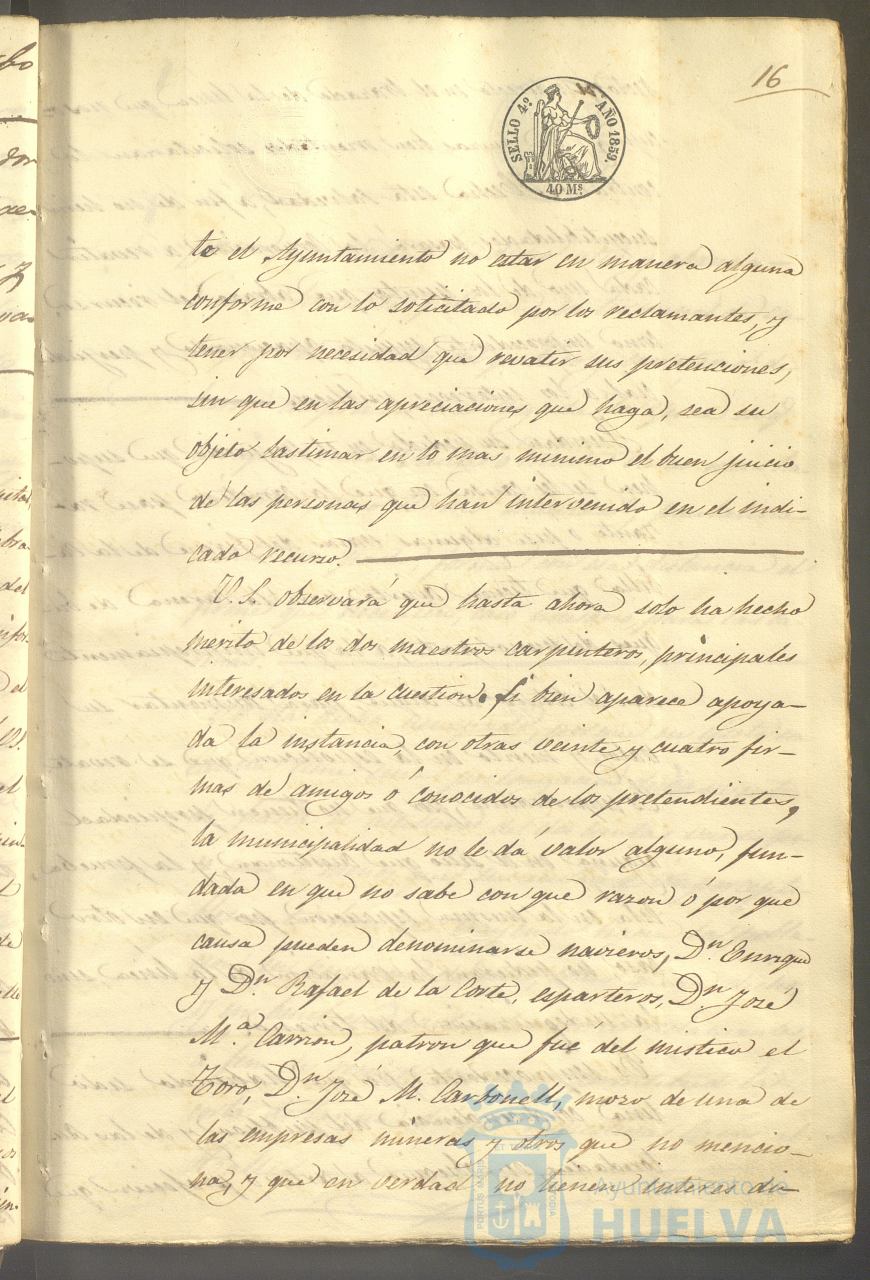 16
SELLO 4º AÑO 1859.
40 Ms.
te el Ayuntamiento no estar en manera alguna
conforme con lo solicitado por los reclamantes, y
tener por necesidad que revatir sus pretenciones,
sin que en las apreciaciones que haga, sea su
objeto lastimar en lo mas minimo el buen juicio
de las personas que han intervenido en el indi-
cado recurso.
V. S. observará que hasta ahora solo ha hecho
merito de los dos maestros carpinteros, principales
interesados en la cuestion. Si bien aparece apoya-
da la instancia, con otras veinte y cuatro fir-
mas de amigos ó conocidos de los pretendientes,
la municipalidad no le dá valor alguno, fun-
dada en que no sabe con que razon ó por que
causa pueden denominarse navieros, Dn. Enrique
y Dn. Rafael de la Corte, esparteros, Dn. José
Mª. Carrion, patron que fué del mistico el
Toro, Dn. José M. Carbonell, mozo de una de
las empresas mineras y otros que no mencio-
na, y que en verdad no tienen interes di-
Ayuntamiento de
HUELVA